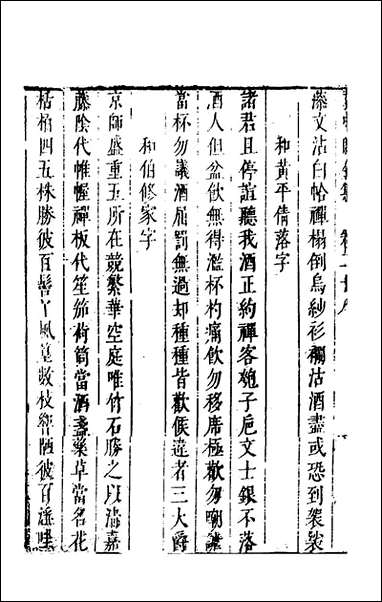 藤文沾白帢禪榻倒烏紗衫襴沽酒盡或恐到袈裟
和黃平倩落字
諸君且停誼聽我酒正約禪客匏子巵文士銀不落
酒人但盆飲無得濫杯杓痛飲勿移席極歡勿嘲謔
當杯勿議酒屈罰無過却種種皆歡侯違者三大爵
和伯修家字
京師盛重五所在競繁華空庭唯竹石勝之以淸嘉
藤陰代帷幄禪板代笙笳荷筒當酒盞藥草當名花
枯栢四五株勝彼百髻丫風篁敲枝響陋彼百滛哇